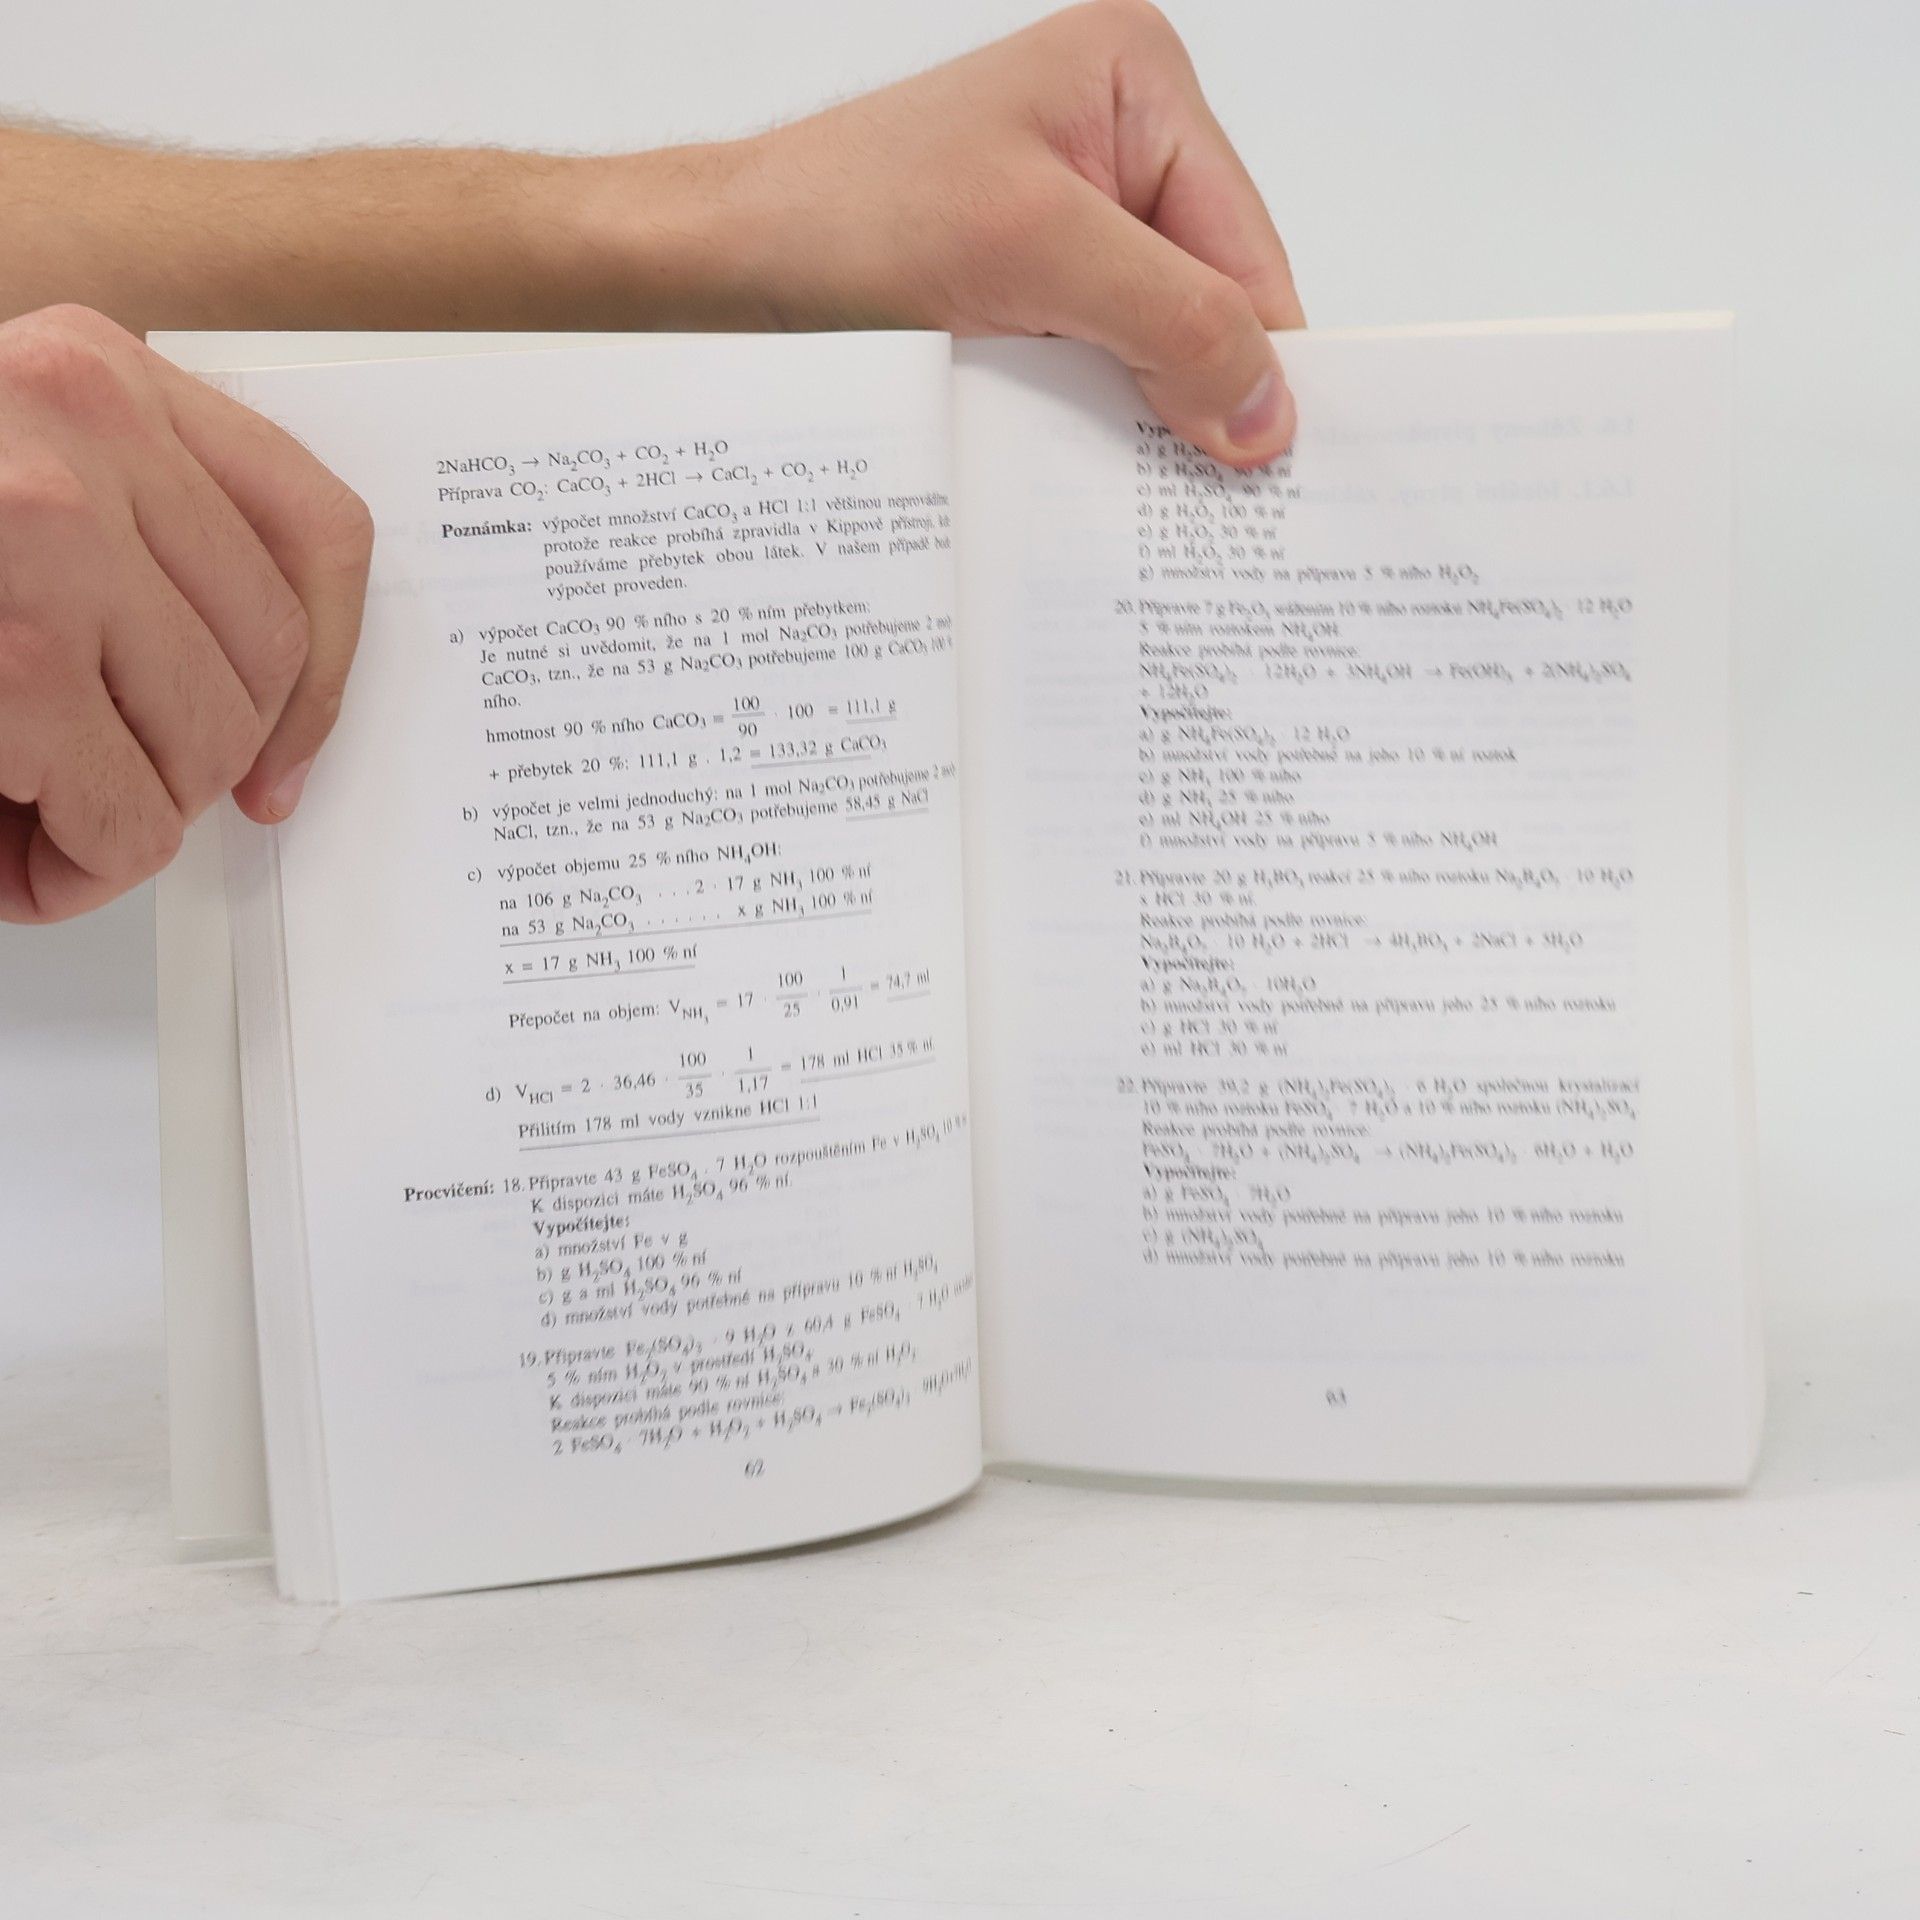 2NaHCO₃ → Na₂CO₃ + CO₂ + H₂O
Příprava CO₂: CaCO₃ + 2HCl → CaCl₂ + CO₂ + H₂O
Poznámka: výpočet množství CaCO₃ a HCl 1:1 většinou neprovádíme,
protože reakce probíhá zpravidla v Kippově přístroji, kde
používáme přebytek obou látek. V našem případě bude
výpočet proveden.
a) výpočet CaCO₃ 90 % ního s 20 % ním přebytkem:
Je nutné si uvědomit, že na 1 mol Na₂CO₃ potřebujeme 2 mol
CaCO₃, tzn., že na 53 g Na₂CO₃ potřebujeme 100 g CaCO₃ 100 %
ního.
hmotnost 90 % ního CaCO₃ = 100/90 · 100 = 111,1 g
+ přebytek 20 %: 111,1 g . 1,2 = 133,32 g CaCO₃
b) výpočet je velmi jednoduchý: na 1 mol Na₂CO₃ potřebujeme 2 mol
NaCl, tzn., že na 53 g Na₂CO₃ potřebujeme 58,45 g NaCl
c) výpočet objemu 25 % ního NH₄OH:
na 106 g Na₂CO₃ . . . 2 · 17 g NH₃ 100 % ní
na 53 g Na₂CO₃ . . . . . . x g NH₃ 100 % ní
x = 17 g NH₃ 100 % ní
Přepočet na objem: V NH₃ = 17 · 100/25 · 1/0,91 = 74,7 ml
d) V HCl = 2 · 36,46 · 100/35 · 1/1,17 = 178 ml HCl 35 % ní
Přilitím 178 ml vody vznikne HCl 1:1
Procvičení: 18. Připravte 43 g FeSO₄ · 7 H₂O rozpouštěním Fe v H₂SO₄ 10 %
K dispozici máte H₂SO₄ 96 % ní.
Vypočítejte:
a) množství Fe v g
b) g H₂SO₄ 100 % ní
c) g a ml H₂SO₄ 96 % ní
d) množství vody potřebné na přípravu 10 % ní H₂SO₄
19. Připravte Fe₂(SO₄)₃ · 9 H₂O z 60,4 g FeSO₄ · 7 H₂O
5 % ním H₂O₂ v prostředí H₂SO₄
K dispozici máte 90 % ní H₂SO₄ a 30 % ní H₂O₂
Reakce probíhá podle rovnice:
2 FeSO₄ · 7H₂O + H₂O₂ + H₂SO₄ → Fe₂(SO₄)₃ · 9H₂O+7H₂O
62
a) g
b) g H₂SO₄ 90 % ní
c) ml H₂SO₄ 90 % ní
d) g H₂O₂ 100 % ní
e) g H₂O₂ 30 % ní
f) ml H₂O₂ 30 % ní
g) množství vody na přípravu 5 % ního H₂O₂
20. Připravte 7 g Fe₂O₃ srážením 10 % ního roztoku NH₄Fe(SO₄)₂ · 12 H₂O
5 % ním roztokem NH₄OH.
Reakce probíhá podle rovnice:
NH₄Fe(SO₄)₂ · 12H₂O + 3NH₄OH → Fe(OH)₃ + 2(NH₄)₂SO₄
+ 12H₂O
Vypočítejte:
a) g NH₄Fe(SO₄)₂ · 12 H₂O
b) množství vody potřebné na jeho 10 % ní roztok
c) g NH₃ 100 % ního
d) g NH₃ 25 % ního
e) ml NH₄OH 25 % ního
f) množství vody na přípravu 5 % ního NH₄OH
21. Připravte 20 g H₃BO₃ reakcí 25 % ního roztoku Na₂B₄O₇ · 10 H₂O
s HCl 30 % ní.
Reakce probíhá podle rovnice:
Na₂B₄O₇ · 10 H₂O + 2HCl → 4H₃BO₃ + 2NaCl + 5H₂O
Vypočítejte:
a) g Na₂B₄O₇ · 10H₂O
b) množství vody potřebné na přípravu jeho 25 % ního roztoku
c) g HCl 30 % ní
e) ml HCl 30 % ní
22. Připravte 39,2 g (NH₄)₂Fe(SO₄)₂ · 6 H₂O společnou krystalizací
10 % ního roztoku FeSO₄ · 7 H₂O a 10 % ního roztoku (NH₄)₂SO₄
Reakce probíhá podle rovnice:
FeSO₄ · 7H₂O + (NH₄)₂SO₄ → (NH₄)₂Fe(SO₄)₂ · 6H₂O + H₂O
Vypočítejte:
a) g FeSO₄ · 7H₂O
b) množství vody potřebné na přípravu jeho 10 % ního roztoku
c) g (NH₄)₂SO₄
d) množství vody potřebné na přípravu jeho 10 % ního roztoku
63